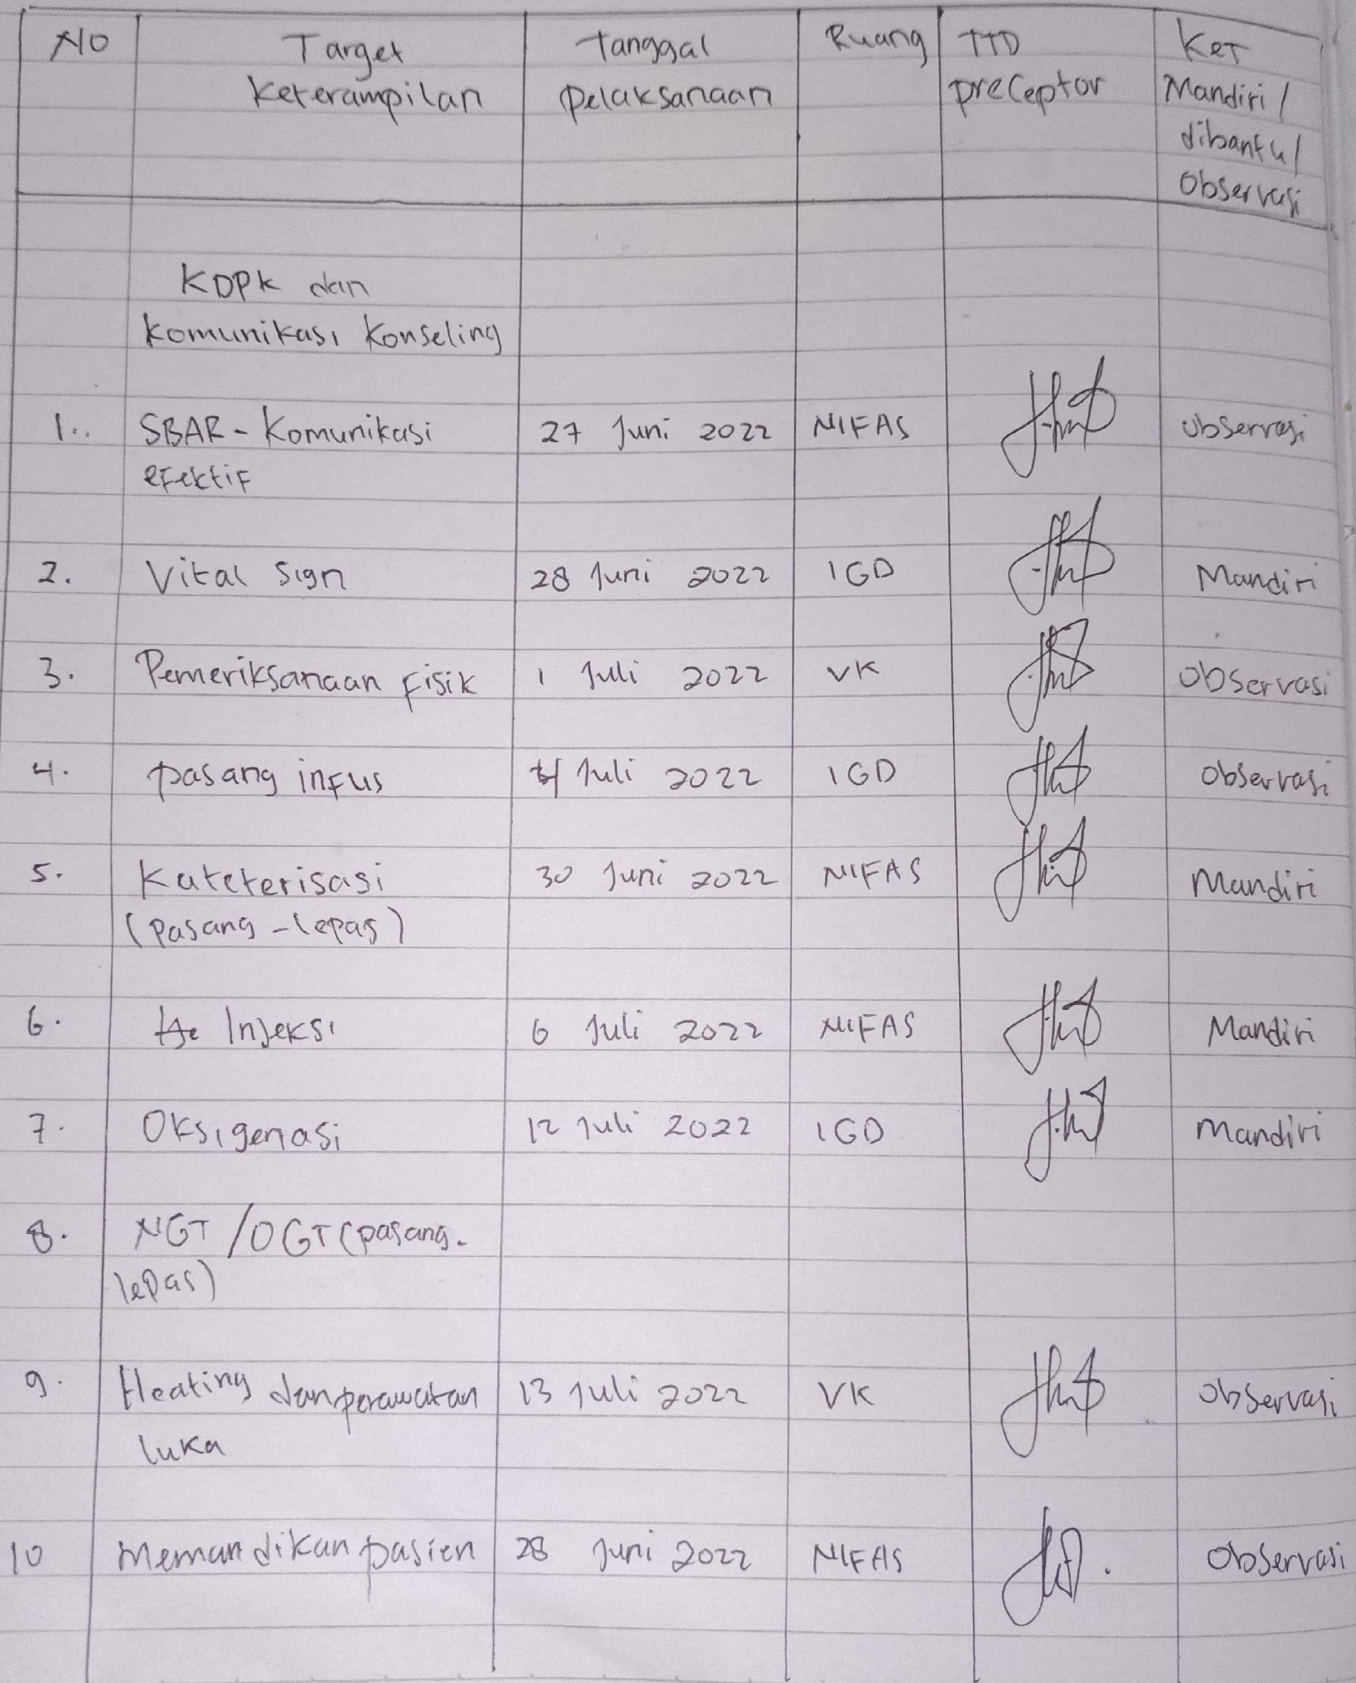 NO Target Tanggal Ruang TTD Ket
Keterampilan pelaksanaan preceptor Mandiri /
dibantu /
Observasi
KDPK dan
Komunikasi Konseling
1.. SBAR - Komunikasi 27 Juni 2022 NIFAS observasi
efektif
2. Vital Sign 28 Juni 2022 IGD Mandiri
3. Pemeriksanaan fisik 1 Juli 2022 VK observasi
4. pasang infus Juli 2022 IGD Observasi
5. Kateterisasi 30 Juni 2022 NIFAS Mandiri
(Pasang - lepas)
6. Injeksi 6 Juli 2022 NIFAS Mandiri
7. Oksigenasi 12 Juli 2022 IGD Mandiri
8. NGT / OGT (pasang-
lepas)
9. Heating dan perawatan 13 Juli 2022 VK Observasi
luka
10 Memandikan pasien 28 Juni 2022 NIFAS Observasi